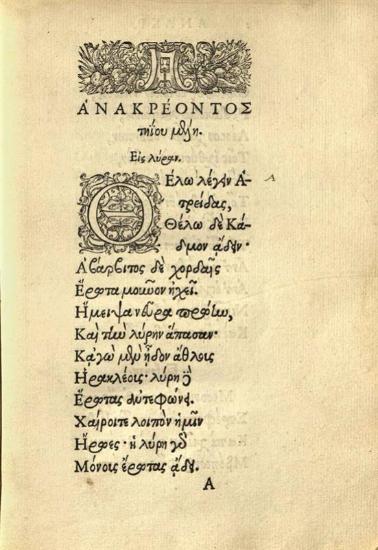 ΑΝΑΚΡΕΟΝΤΟΣ
τηΐου μέλη.
Εἰς λύραν.
Θέλω λέγειν Ἀ-
τρείδας,
Θέλω δὲ Κάδ-
μον ᾄδειν·
Ἁ βάρβιτος δὲ χορδαῖς
Ἔρωτα μοῦνον ἠχεῖ.
Ἤμειψα νεῦρα πρώην,
Καὶ τὴν λύρην ἅπασαν·
Κᾀγὼ μὲν ᾖδον ἄθλοις
Ἡρακλέοις· λύρη δὲ
Ἔρωτας ἀντεφώνει.
Χαίροιτε λοιπὸν ἡμῖν
Ἥρωες· ἡ λύρη γὸ
Μόνοις ἔρωτας ᾄδει.
A